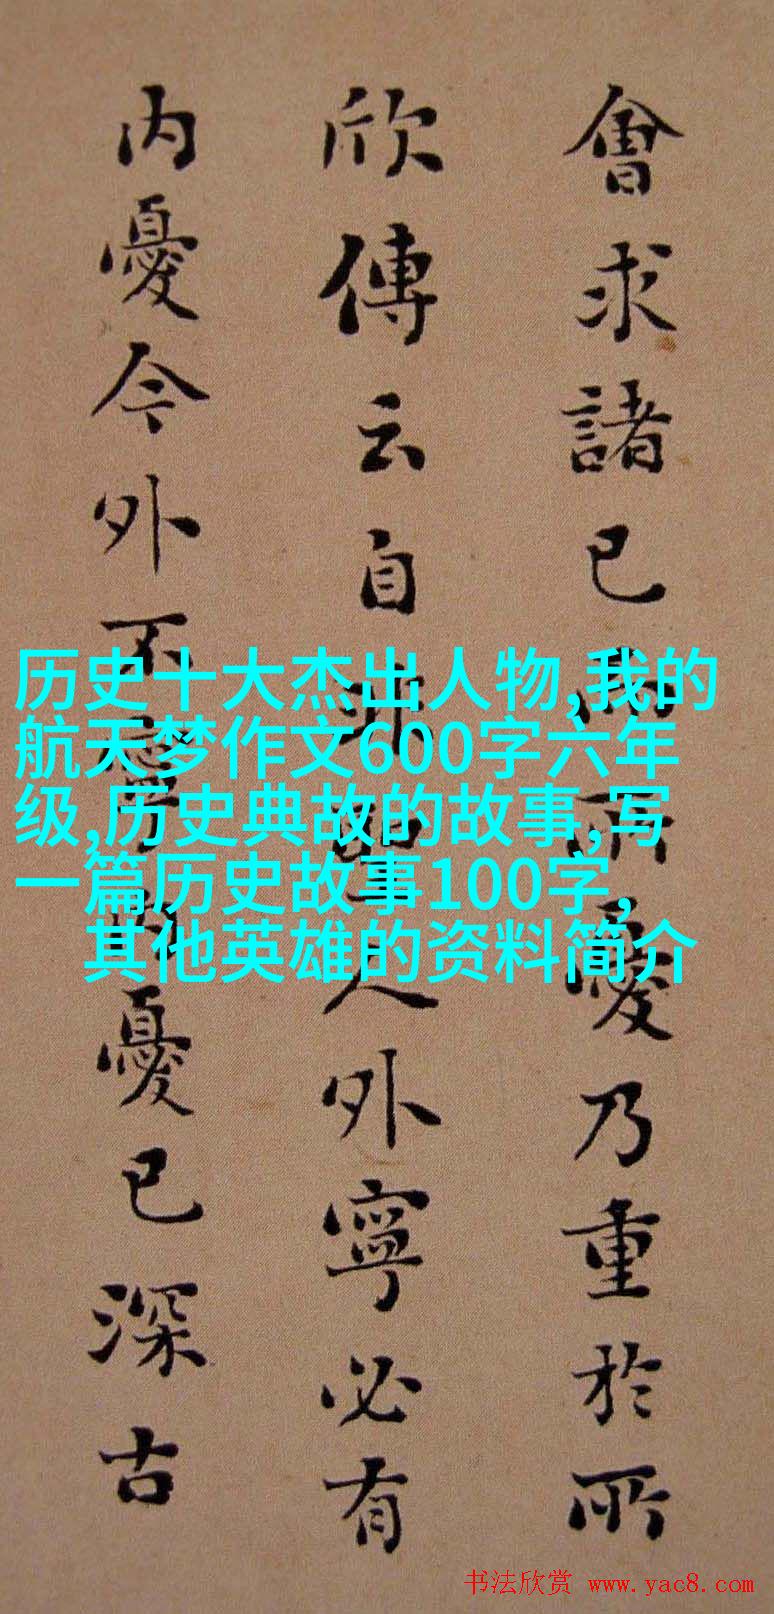 會求諸已而所憂乃重於所
欣傳云自非聖人外寧必有
内憂今外不寧内憂已深古
历史十大杰出人物,我的
航天梦作文600字六年
级,历史典故的故事,写
一篇历史故事100字,
其他英雄的资料简介
书法欣赏 www.yac8.com